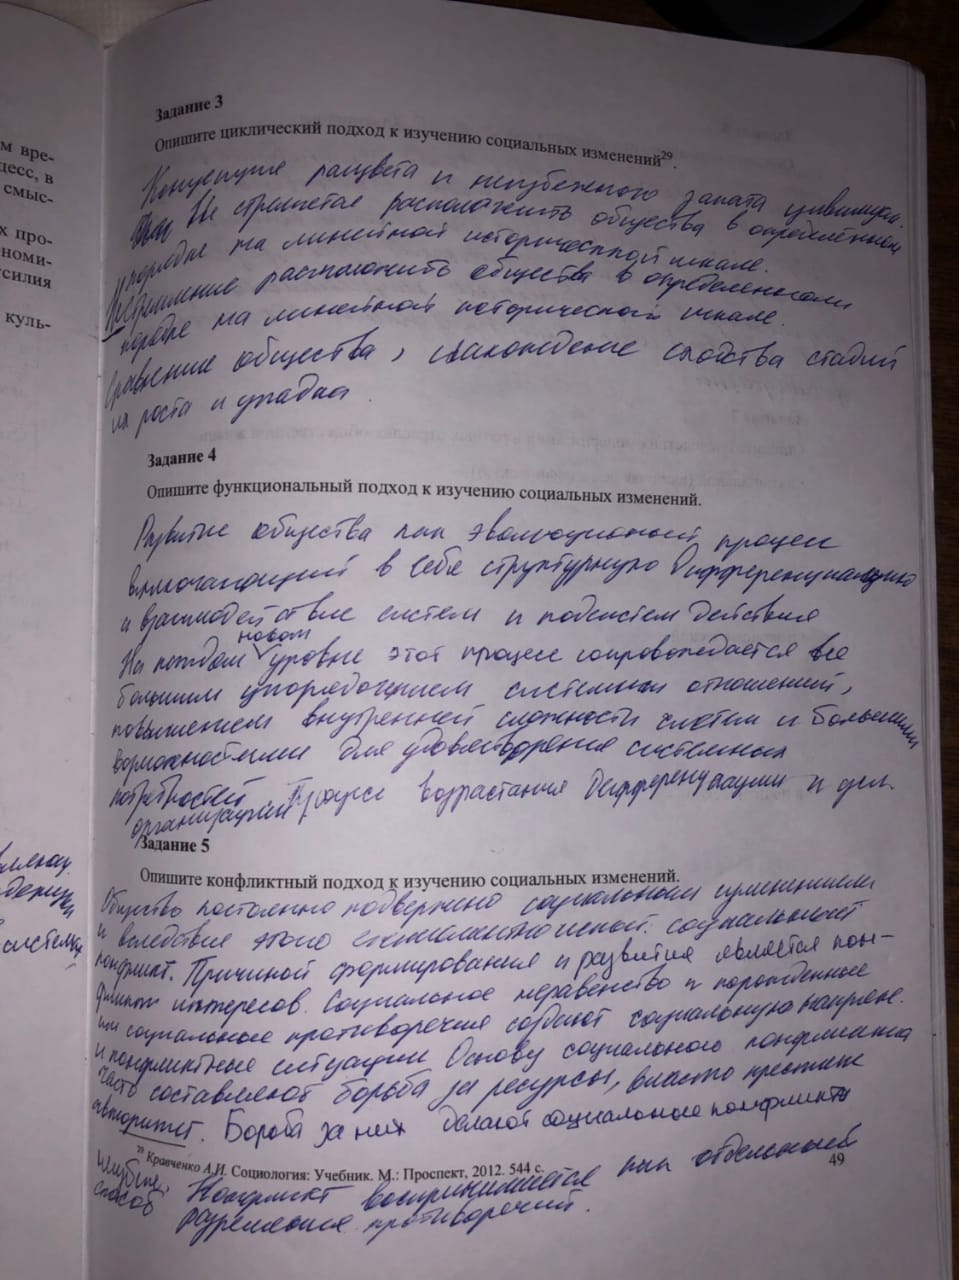 м вре-
цесс, в
смыс-
х про-
номи-
усилия
куль-
системы
Задание 3
Опишите циклический подход к изучению социальных изменений²⁹.
Концепция расцвета и неизбежного заката цивилизац.
Не стремится расположить общества в определённом
порядке на линейной исторической шкале.
Нестремление расположить общества в определенном
порядке на линейной исторической шкале.
Сравнение общества, нахождение сходства стадий
их роста и упадка.
Задание 4
Опишите функциональный подход к изучению социальных изменений.
Развитие общества как эволюционный процесс
включающий в себя структурную дифференциацию
и взаимодействие систем и подсистем действия
На каждом новом уровне этот процесс сопровождается все
большим упорядочением системных отношений,
повышением внутренней сложности систем и большими
возможностями для удовлетворения системных
потребностей. Процесс возрастания дифференциации и
организации
Задание 5
Опишите конфликтный подход к изучению социальных изменений.
Общество постоянно подвержено социальным изменениям
и вследствие этого социальный
конфликт. Причиной формирования и развития является кон-
фликт интересов. Социальное неравенство и порожденные
им социальные противоречия создают социальную напряжен.
и конфликтные ситуации Основу социального конфликта
часто составляют борьба за ресурсы, власть престиж
авторитет. Борьба за них делают социальные конфликты
²⁹ Кравченко А.И. Социология: Учебник. М.: Проспект, 2012. 544 с.
49
неизбеж. Конфликт воспринимается как отдельный
способ разрешения противоречий.